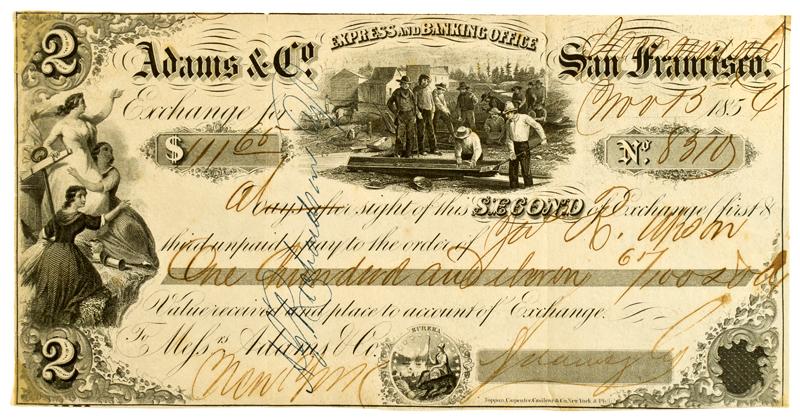 2
EXPRESS AND BANKING OFFICE
Adams & Co.
San Francisco.
Nov 13 1854
Exchange for
$ 111 65
No. 8310
At days after sight of this SECOND of Exchange (first &
third unpaid) pay to the order of R. Upson
One Hundred and eleven 65/100 Dolls
Value received and place to account of Exchange.
To Messrs Adams & Co.
New York
2
EUREKA
Adams & Co
Toppan, Carpenter, Casilear & Co. New York & Phila.